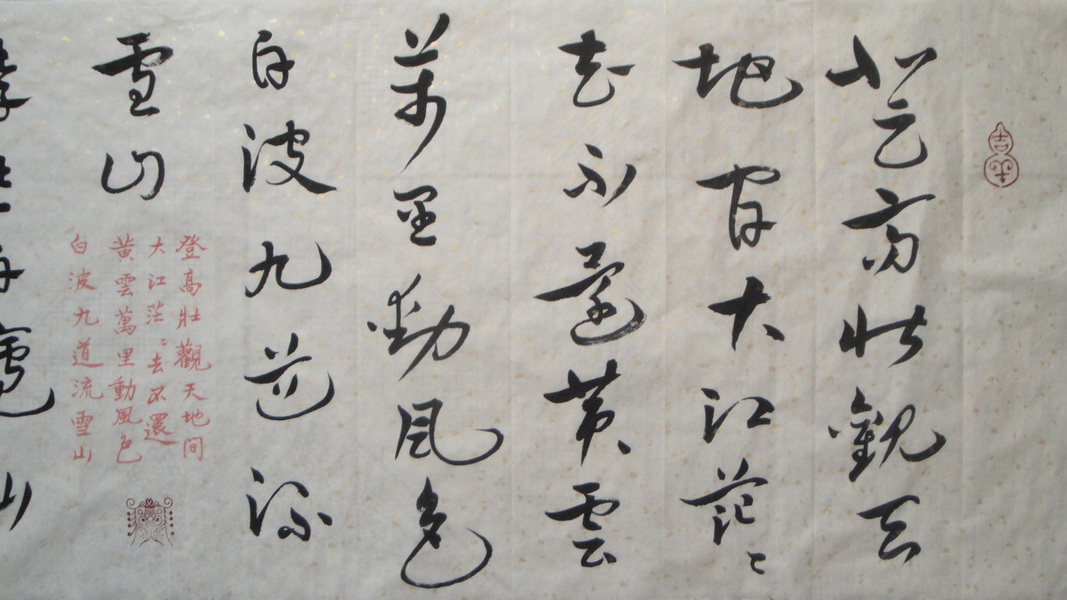 吉羊
登高壯觀天
地間大江茫〻
去不還黃雲
萬里動風色
白波九道流
雪山
登高壯觀天地間
大江茫〻去不還
黃雲萬里動風色
白波九道流雪山